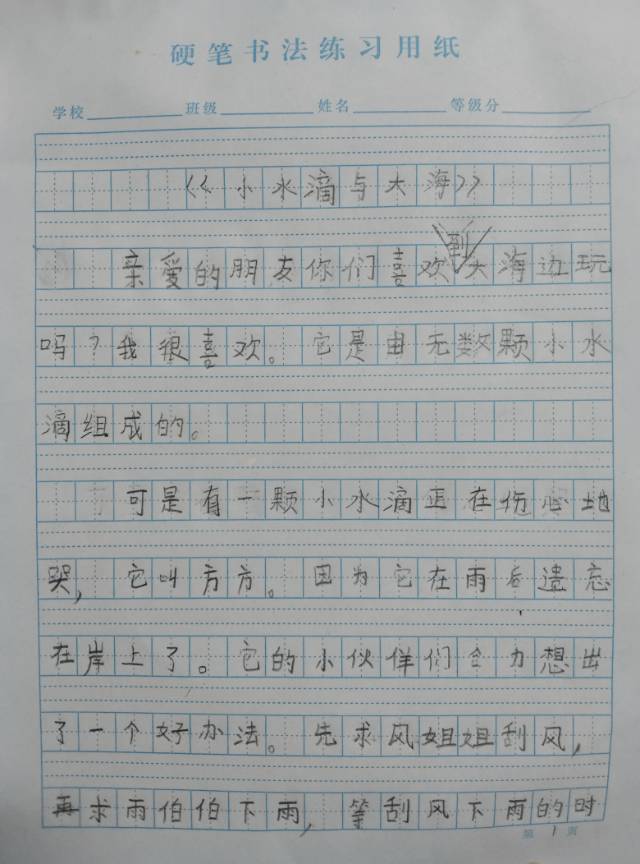 硬笔书法练习用纸
学校 班级 姓名 等级分
《小水滴与大海》
亲爱的朋友你们喜欢到大海边玩
吗？我很喜欢。它是由无数颗小水
滴组成的。
可是有一颗小水滴正在伤心地
哭，它叫方方。因为它在雨后遗忘
在岸上了。它的小伙佯们合力想出
了一个好办法。先求风姐姐刮风，
再求雨伯伯下雨，等刮风下雨的时
第1页